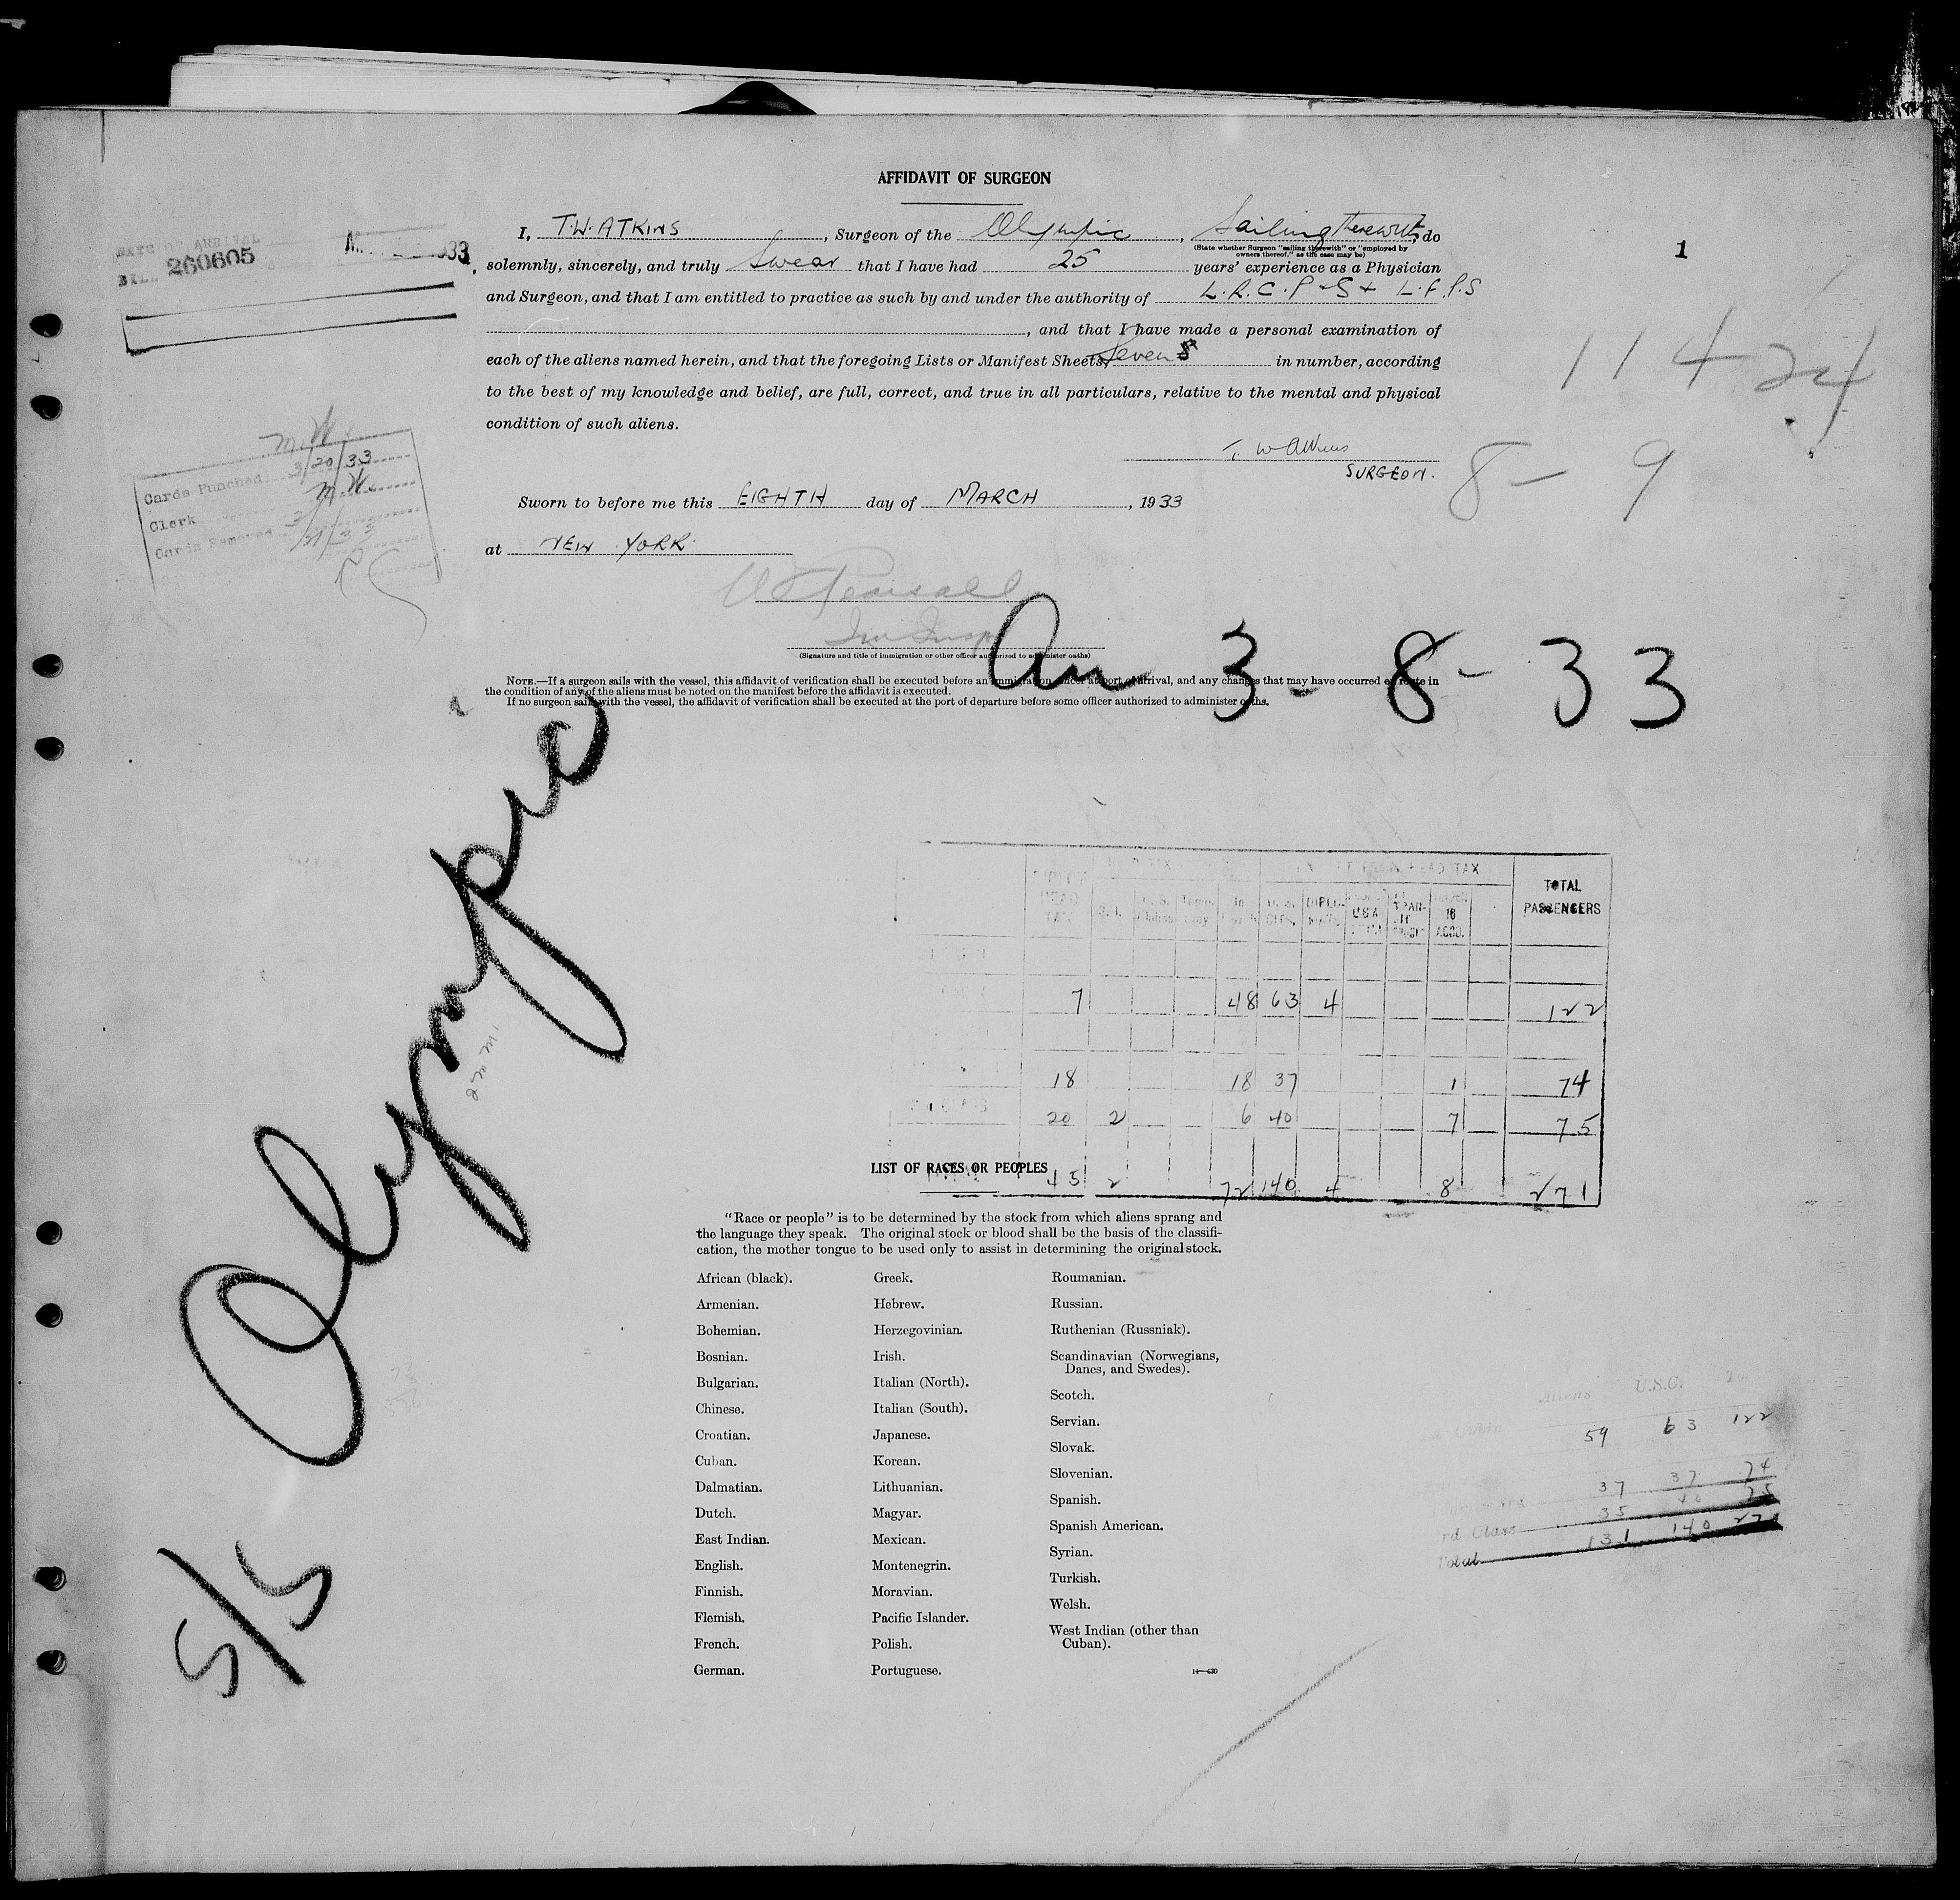 AFFIDAVIT OF SURGEON
I, T.W. ATKINS, Surgeon of the Olympic, Sailing therewith, do
(State whether Surgeon "sailing therewith" or "employed by
owners thereof," as the case may be)
solemnly, sincerely, and truly Swear that I have had 25 years' experience as a Physician
and Surgeon, and that I am entitled to practice as such by and under the authority of L.R.C.P & S & L.F.P.S
, and that I have made a personal examination of
each of the aliens named herein, and that the foregoing Lists or Manifest Sheets, seven 8 in number, according
to the best of my knowledge and belief, are full, correct, and true in all particulars, relative to the mental and physical
condition of such aliens.
T. W Atkins
SURGEON.
Sworn to before me this EIGHTH day of MARCH, 1933
at NEW YORK
(Signature and title of immigration or other officer authorized to administer oaths)
NOTE.—If a surgeon sails with the vessel, this affidavit of verification shall be executed before an immigration officer at port of arrival, and any changes that may have occurred en route in
the condition of any of the aliens must be noted on the manifest before the affidavit is executed.
If no surgeon sails with the vessel, the affidavit of verification shall be executed at the port of departure before some officer authorized to administer oaths.
260605
33
1
11424
8 - 9
M.W.
Cards Punched 3/20/33
Clerk M.W.
Arr 3-8-33
S/S Olympic
HEAD TAX
TOTAL PASSENGERS
7 48 63 4 122
18 18 37 1 74
20 2 6 40 7 75
45 2 72 140 4 8 271
LIST OF RACES OR PEOPLES
"Race or people" is to be determined by the stock from which aliens sprang and
the language they speak. The original stock or blood shall be the basis of the classifi-
cation, the mother tongue to be used only to assist in determining the original stock.
African (black).
Armenian.
Bohemian.
Bosnian.
Bulgarian.
Chinese.
Croatian.
Cuban.
Dalmatian.
Dutch.
East Indian.
English.
Finnish.
Flemish.
French.
German.
Greek.
Hebrew.
Herzegovinian.
Irish.
Italian (North).
Italian (South).
Japanese.
Korean.
Lithuanian.
Magyar.
Mexican.
Montenegrin.
Moravian.
Pacific Islander.
Polish.
Portuguese.
Roumanian.
Russian.
Ruthenian (Russniak).
Scandinavian (Norwegians,
Danes, and Swedes).
Scotch.
Servian.
Slovak.
Slovenian.
Spanish.
Spanish American.
Syrian.
Turkish.
Welsh.
West Indian (other than
Cuban).
Aliens U.S.C.
59 63 122
37 37 74
rd Class 35 40 75
Total 131 140 271